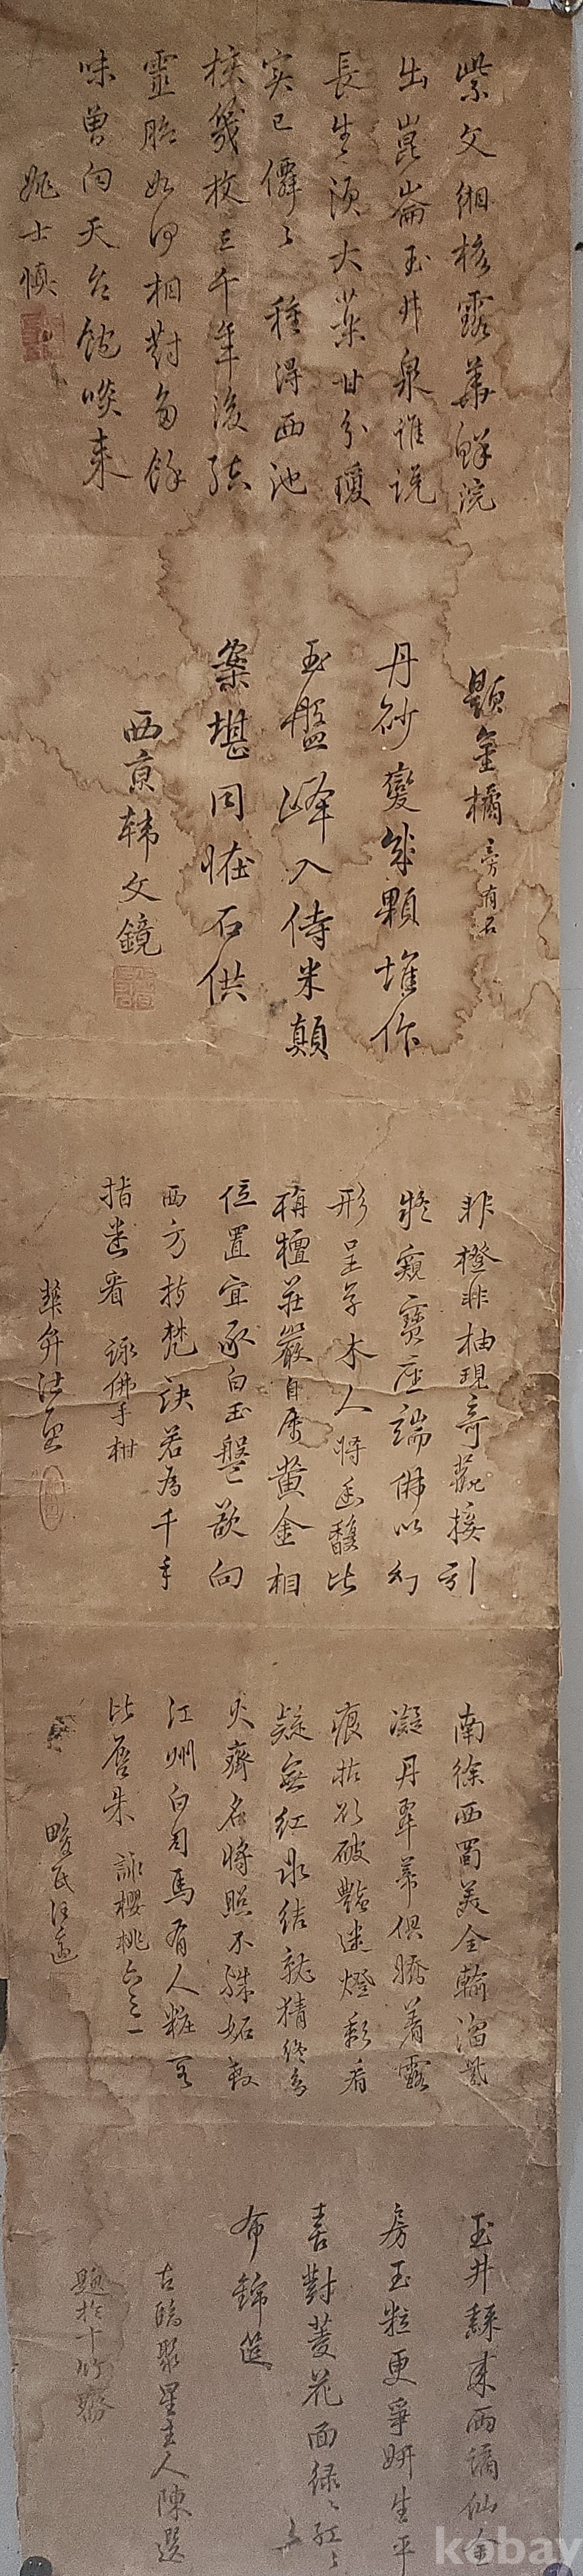 紫文緗核露華鮮浣
出崑崙玉井泉誰說
長生須大藥甘分瓊
實已僊〻種得西池
核幾枚三千年後結
靈胎如何相對多餘
味曾向天台飽啖來
姚士慎
題金橘旁有石
丹砂變幾顆堆作
玉盤峰入侍米顛
案堪同怪石供
西京韩文鏡
非橙非柚現奇葩接引
疑窺寶座端佛以幻
形呈草木人將香馥比
栴檀莊嚴自属黄金相
位置宜承白玉盤欲向
西方指梵訣若為千手
指迷看 詠佛手柑
南徐西蜀美全輸溜氣
凝丹翠蒂俱臍着露
痕拈欲破豔迷燈影看
疑無紅冰結就猜終
火齊名將照不殊妬殺
江州白司馬有人粧
比唇朱 詠櫻桃六之一
玉井蘇來两謫仙金
房玉粒更爭妍生平
喜對菱花面緑〻紅〻
布錦筵
古臨聚星主人陳選
題於十竹齋
kobay